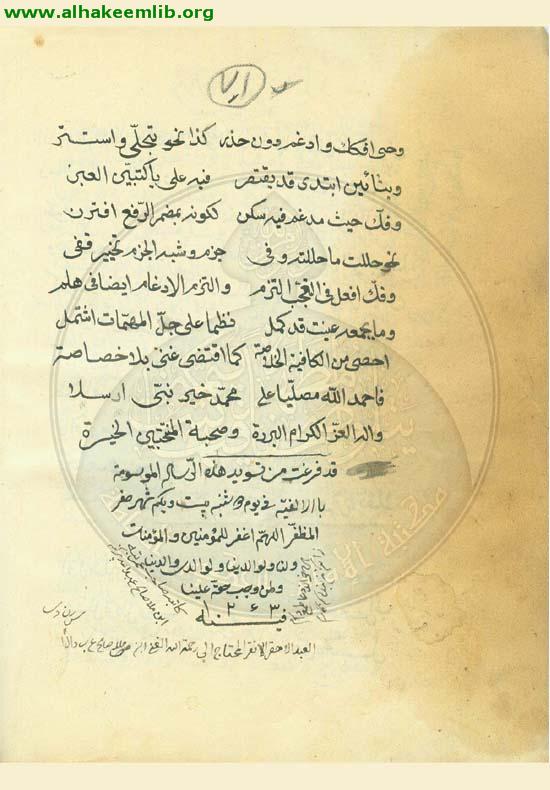 www.alhakeemlib.org
٧١
وحيى افكك وادغم دون حذر كذا نحو تتجلى واستتر
وبتائين ابتدى قد يقتصر فيه على تا كتبين العبر
وفك حيث مدغم فيه سكن لكونه بمضمر الرفع اقترن
نحو حللت ما حللته وفى جزم وشبه الجزم تخيير قفى
وفك افعل فى التعجب التزم والتزم الادغام ايضا فى هلم
وما بجمعه عنيت قد كمل نظما على جل المهمات اشتمل
احصى من الكافية الخلاصة كما اقتضى غنى بلا خصاصة
فاحمد الله مصليا على محمد خير نبى ارسلا
واله الغر الكرام البررة وصحبه المنتخبين الخيرة
قد فرغت من تسويد هذه الرسالة الموسومة
بالالفية فى يوم شنبه بيست ويكم شهر صفر
المظفر اللهم اغفر للمؤمنين والمؤمنات
ولنا ولوالدينا ولوالدى والدينا
ولمن وجب حقه علينا
١٢٦٣
العبد الاحقر الافقر المحتاج الى رحمة الله الغنى ابن